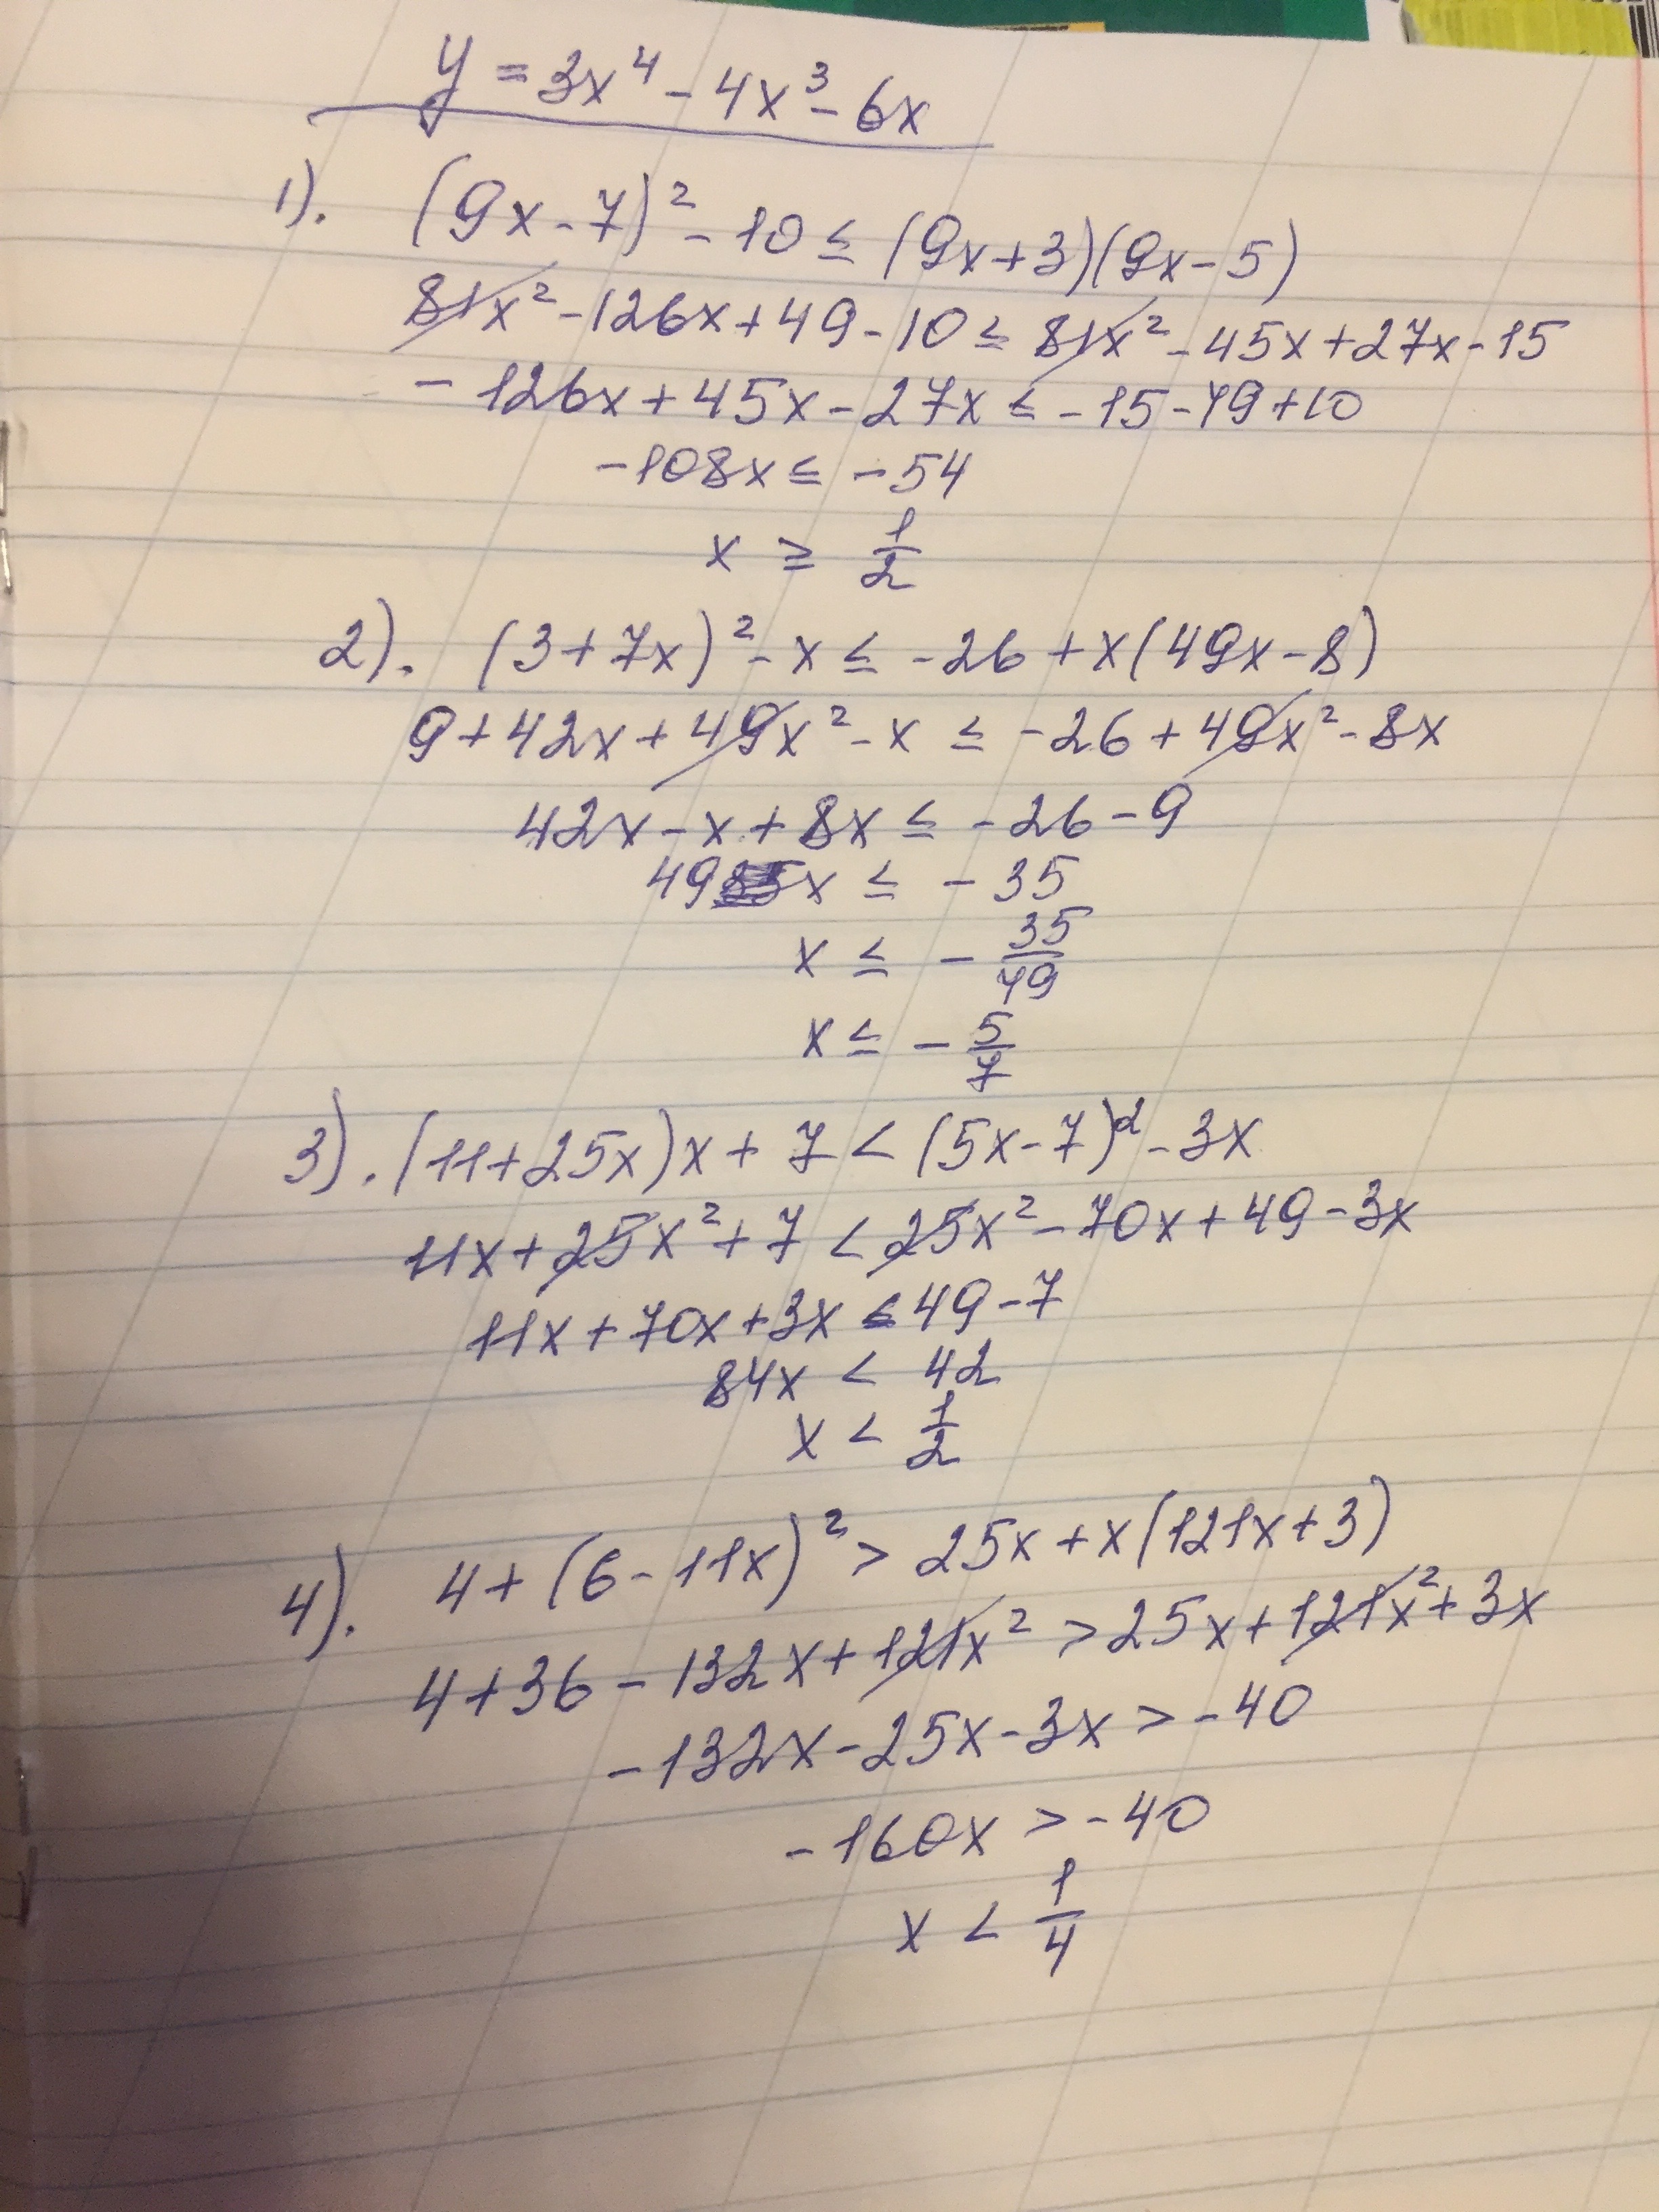 y = 3x⁴ - 4x³ - 6x
1). (9x - 7)² - 10 ≤ (9x + 3)(9x - 5)
81x² - 126x + 49 - 10 ≤ 81x² - 45x + 27x - 15
- 126x + 45x - 27x ≤ - 15 - 49 + 10
- 108x ≤ - 54
x ≥ 1/2
2). (3 + 7x)² - x ≤ - 26 + x(49x - 8)
9 + 42x + 49x² - x ≤ - 26 + 49x² - 8x
42x - x + 8x ≤ - 26 - 9
49x ≤ - 35
x ≤ - 35/49
x ≤ - 5/7
3). (11 + 25x)x + 7 < (5x - 7)² - 3x
11x + 25x² + 7 < 25x² - 70x + 49 - 3x
11x + 70x + 3x < 49 - 7
84x < 42
x < 1/2
4). 4 + (6 - 11x)² > 25x + x(121x + 3)
4 + 36 - 132x + 121x² > 25x + 121x² + 3x
- 132x - 25x - 3x > - 40
- 160x > - 40
x < 1/4